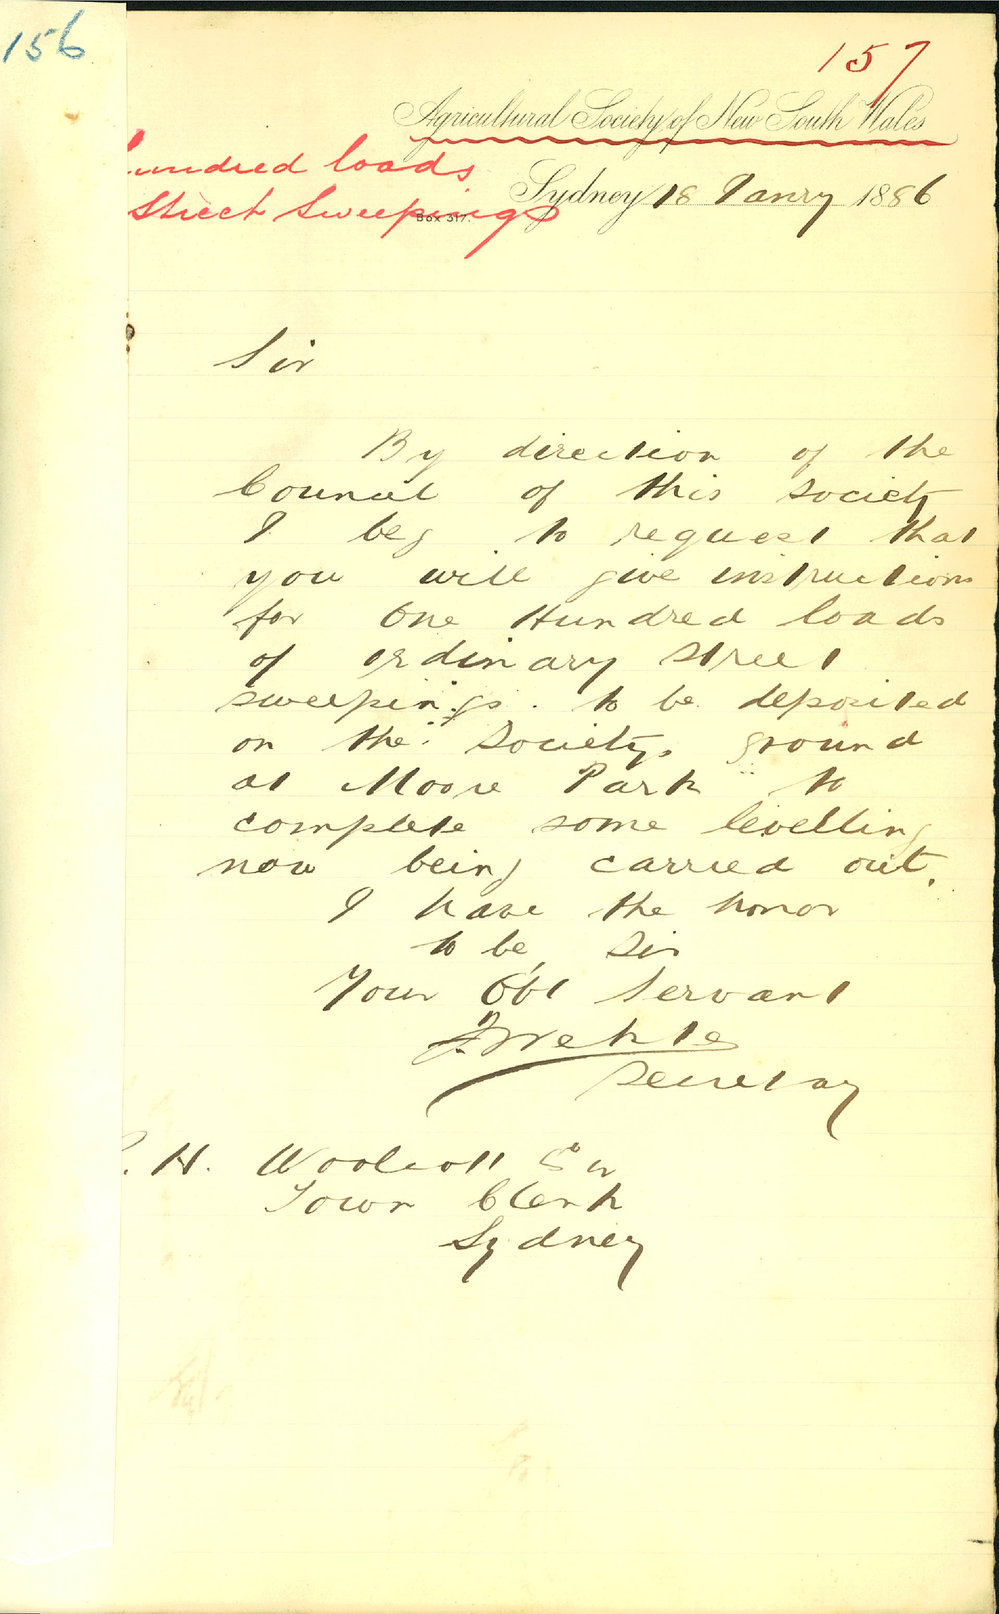 156
157
Agricultural Society of New South Wales
hundred loads
Sydney 18 Janry 1886
Street Sweepings
Box 317.
Sir
By direction of the
Council of this society
I beg to request that
you will give instructions
for One Hundred loads
of ordinary street
sweepings. to be deposited
on the Societys ground
at Moore Park to
complete some levelling
now being carried out.
I have the honor
to be, Sir
Your Obt Servant
Secretary
. H. Woolcott Esq
Town Clerk
Sydney